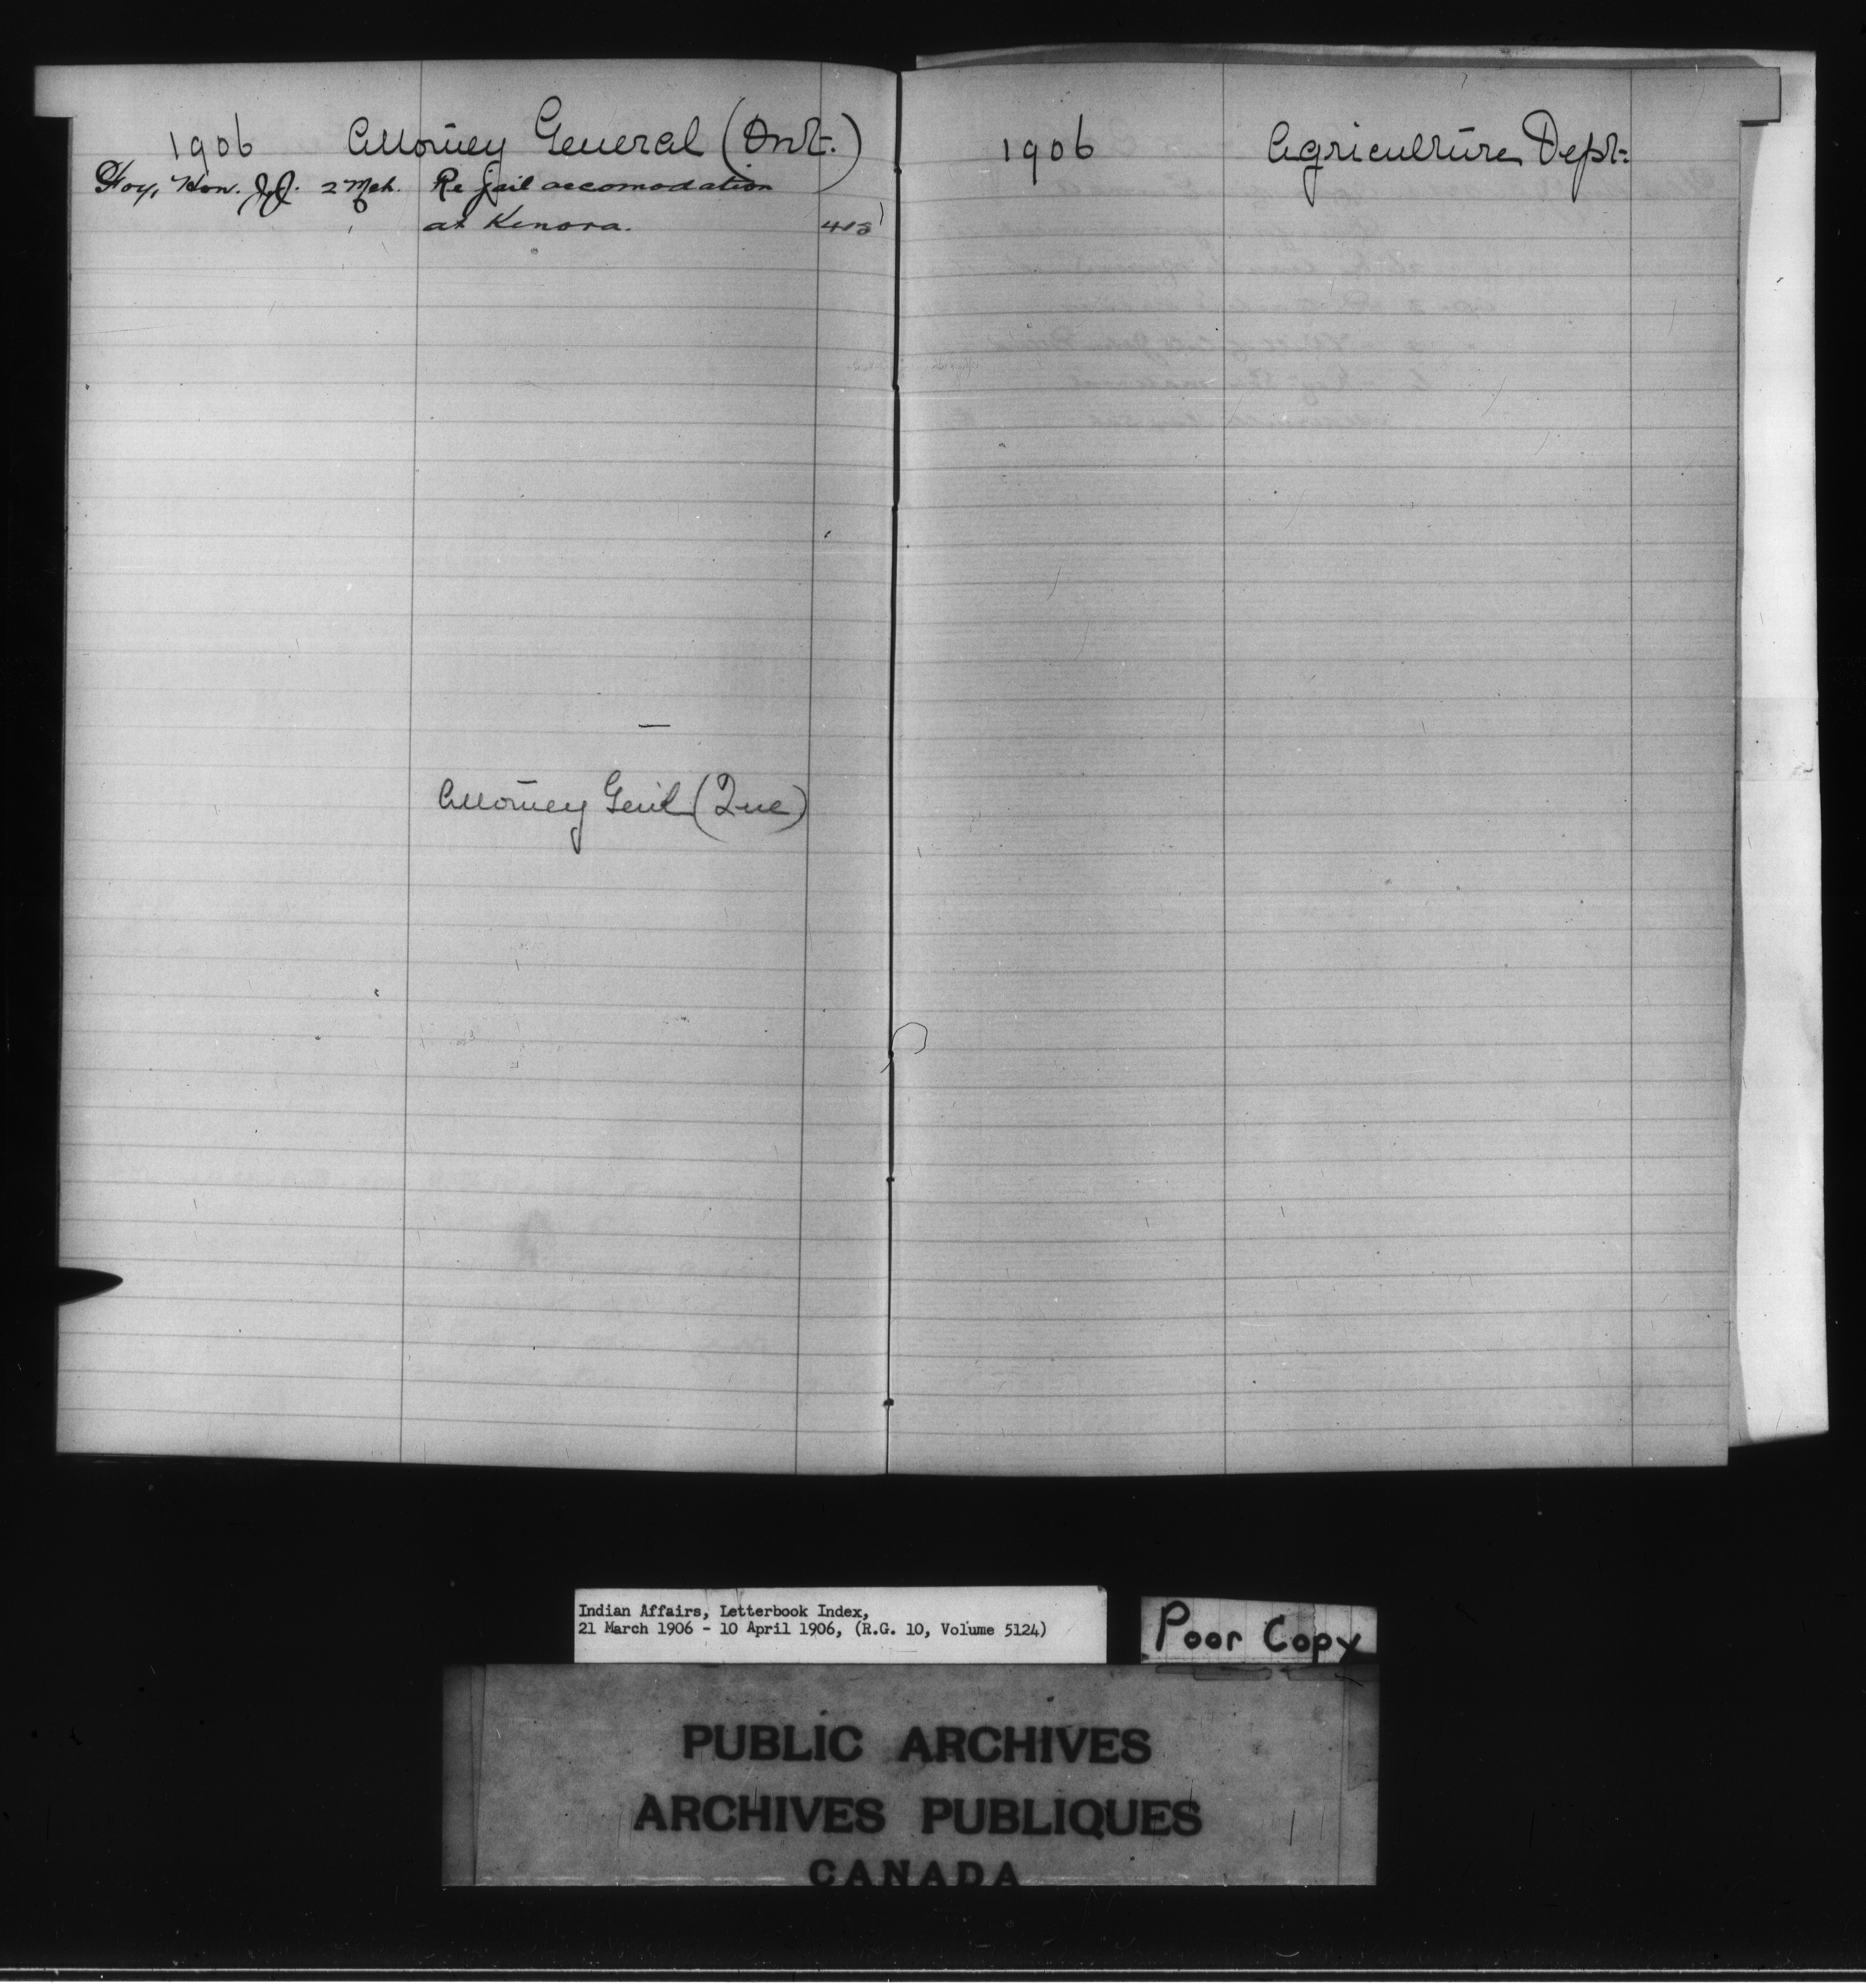 1906 Attorney General (Ont.)
Foy, Hon. J.J. 2 Mch. Re jail accomodation
at Kenora. 413
Attorney Genl (Que)
1906 Agriculture Dept.
Indian Affairs, Letterbook Index,
21 March 1906 - 10 April 1906, (R.G. 10, Volume 5124)
Poor Copy
PUBLIC ARCHIVES
ARCHIVES PUBLIQUES
CANADA